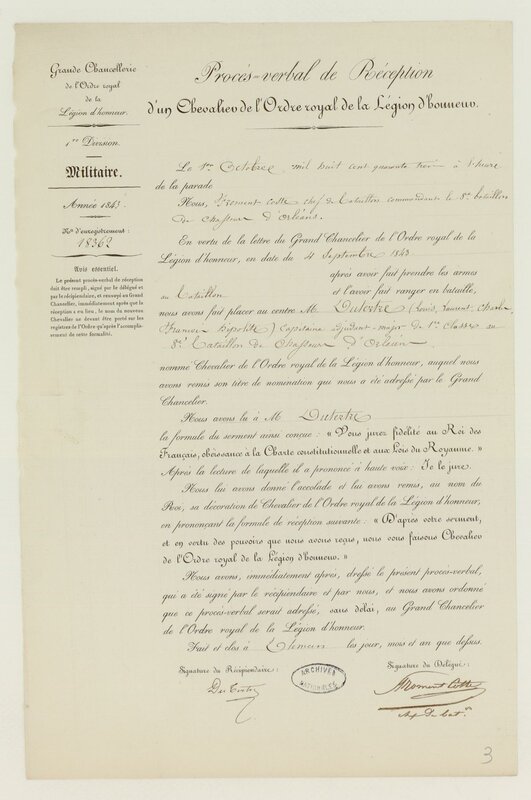 Grande Chancellerie
de l'Ordre royal
de la
Légion d'honneur.
1re Division.
Militaire.
Année 1843.
No d'enregistrement:
18362
Avis essentiel.
Le présent procès-verbal de réception
doit être rempli, signé par le délégué et
par le récipiendaire, et renvoyé au Grand
Chancelier, immédiatement après que la
réception a eu lieu, le nom du nouveau
Chevalier ne devant être porté sur les
registres de l'Ordre qu'après l'accomplis-
sement de cette formalité.
Procès-verbal de Réception
d'un Chevalier de l'Ordre royal de la Légion d'honneur.
Le 1er Octobre mil huit cent quarante trois à l'heure
de la parade
Nous, Froment Coste chef de bataillon commandant le 8e bataillon
de chasseurs d'Orléans.
En vertu de la lettre du Grand Chancelier de l'Ordre royal de la
Légion d'honneur, en date du 4 Septembre 1843
après avoir fait prendre les armes
au bataillon et l'avoir fait ranger en bataille,
nous avons fait placer au centre M. Dutertre (Louis, Laurent, Charles
François hipolite) Capitaine adjudant-major de 1re Classe au
8e bataillon de chasseurs d'Orléans
nommé Chevalier de l'Ordre royal de la Légion d'honneur, auquel nous
avons remis son titre de nomination qui nous a été adressé par le Grand
Chancelier.
Nous avons lu à M. Dutertre
la formule du serment ainsi conçue: « Vous jurez fidélité au Roi des
Français, obéissance à la Charte constitutionnelle et aux Lois du Royaume. »
Après la lecture de laquelle il a prononcé à haute voix: Je le jure.
Nous lui avons donné l'accolade et lui avons remis, au nom du
Roi, sa décoration de Chevalier de l'Ordre royal de la Légion d'honneur,
en prononçant la formule de réception suivante: « D'après votre serment,
et en vertu des pouvoirs que nous avons reçus, nous vous faisons Chevalier
de l'Ordre royal de la Légion d'honneur. »
Nous avons, immédiatement après, dressé le présent procès-verbal,
qui a été signé par le récipiendaire et par nous, et nous avons ordonné
que ce procès-verbal serait adressé, sans délai, au Grand Chancelier
de l'Ordre royal de la Légion d'honneur.
Fait et clos à Tlemcen les jour, mois et an que dessus.
Signature du Récipiendaire:
Signature du Délégué:
Du Tertre
ARCHIVES
NATIONALES
Froment Coste
chef de Bat.on
3